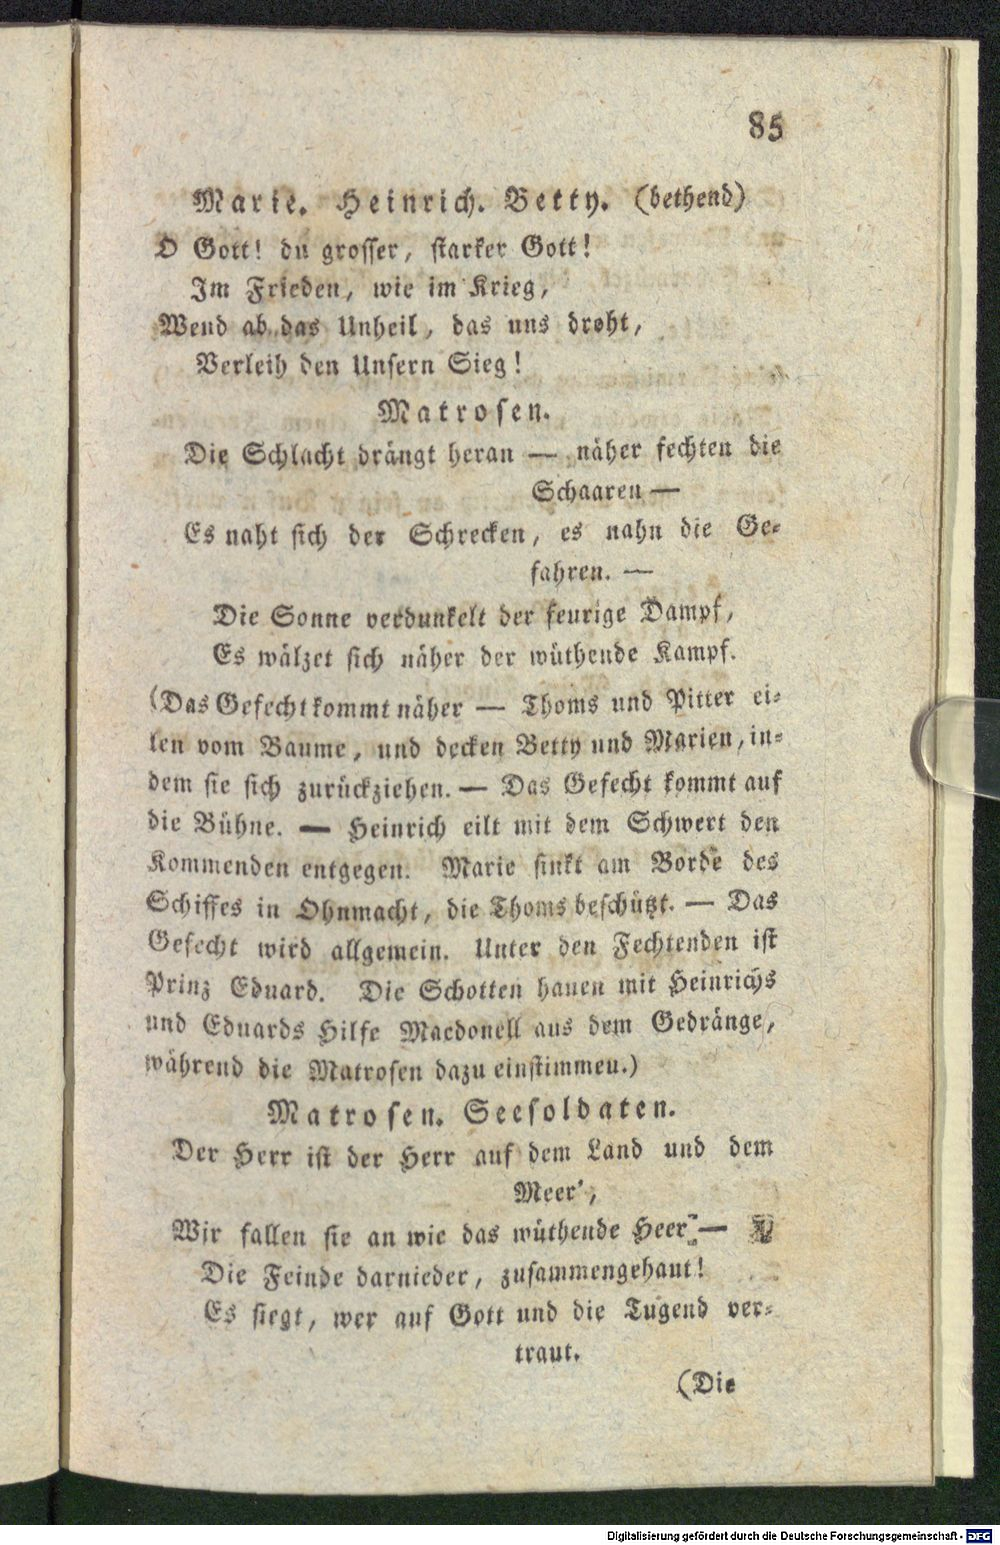 85
Marie. Heinrich. Betty. (bethend)
O Gott! du grosser, starker Gott!
Im Frieden, wie im Krieg,
Wend ab das Unheil, das uns droht,
Verleih den Unsern Sieg!
Matrosen.
Die Schlacht drängt heran — näher fechten die
Schaaren —
Es naht sich der Schrecken, es nahn die Ge-
fahren. —
Die Sonne verdunkelt der feurige Dampf,
Es wälzet sich näher der wüthende Kampf.
(Das Gefecht kommt näher — Thoms und Pitter ei-
len vom Baume, und decken Betty und Marien, in-
dem sie sich zurückziehen. — Das Gefecht kommt auf
die Bühne. — Heinrich eilt mit dem Schwert den
Kommenden entgegen. Marie sinkt am Borde des
Schiffes in Ohnmacht, die Thoms beschützt. — Das
Gefecht wird allgemein. Unter den Fechtenden ist
Prinz Eduard. Die Schotten hauen mit Heinrichs
und Eduards Hilfe Macdonell aus dem Gedränge,
während die Matrosen dazu einstimmen.)
Matrosen. Seesoldaten.
Der Herr ist der Herr auf dem Land und dem
Meer',
Wir fallen sie an wie das wüthende Heer —
Die Feinde darnieder, zusammengehaut!
Es siegt, wer auf Gott und die Tugend ver-
traut.
(Die
Digitalisierung gefördert durch die Deutsche Forschungsgemeinschaft - DFG